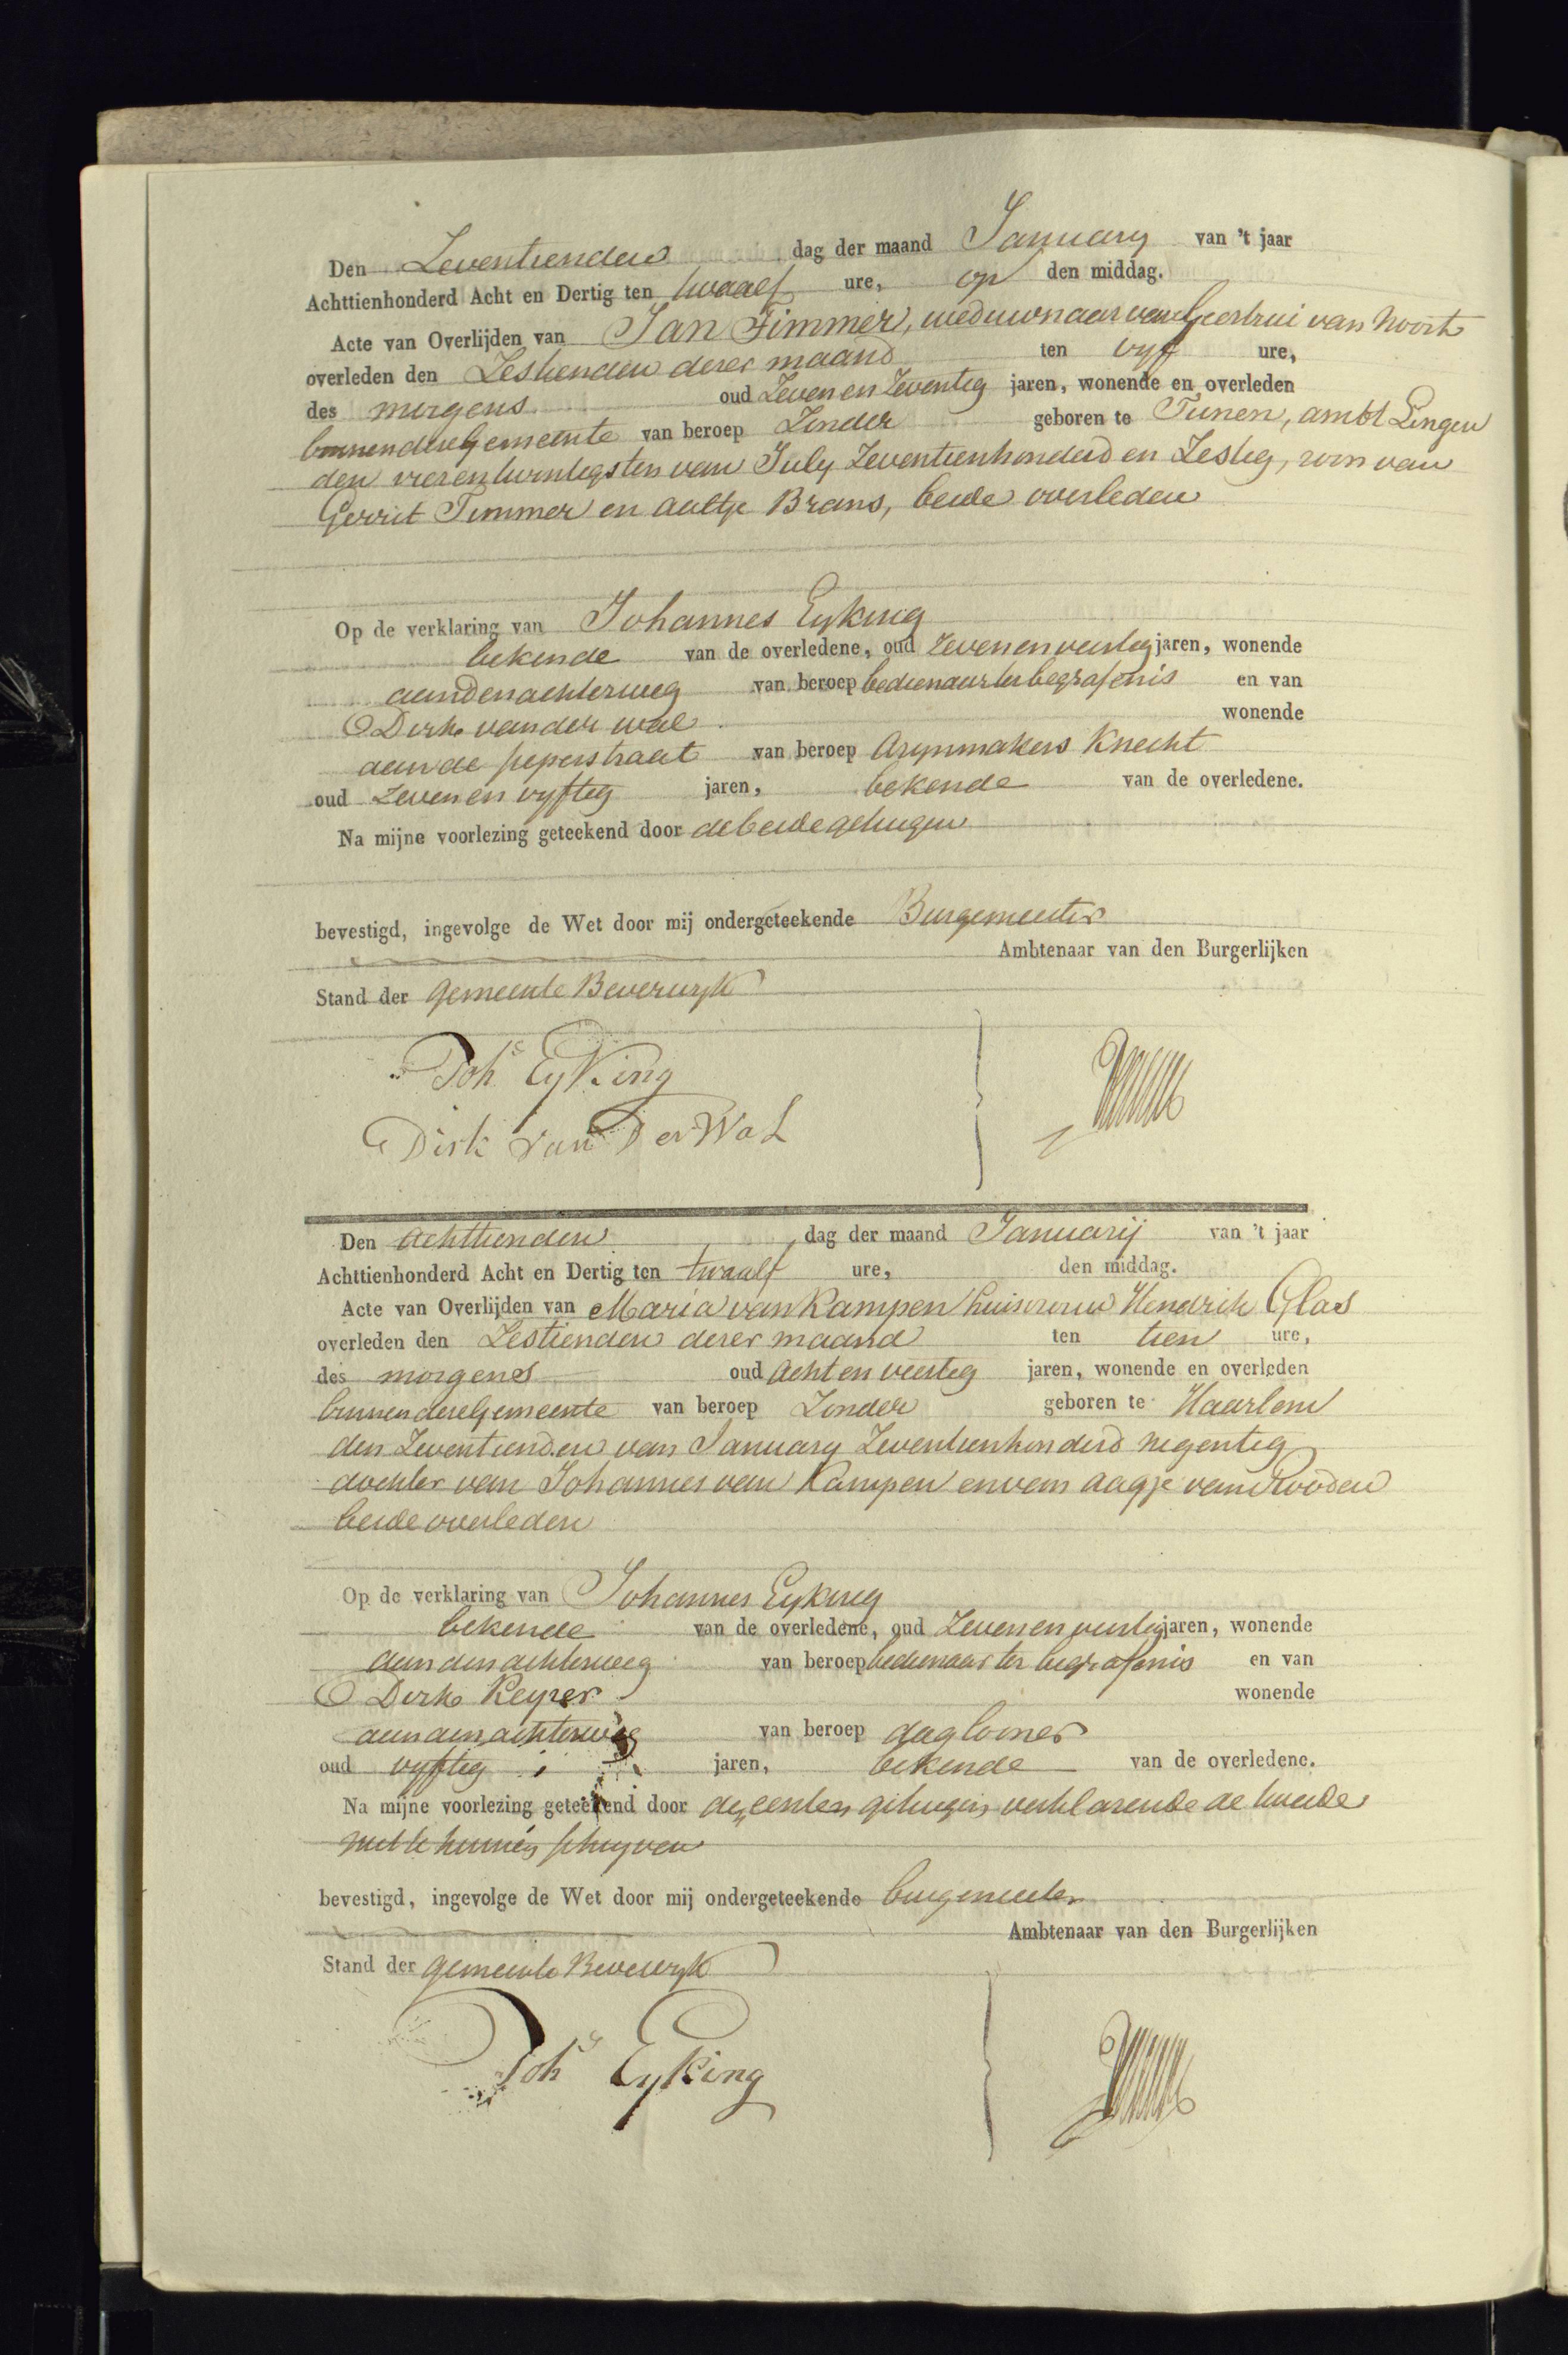 Den Zeventienden dag der maand January van 't jaar
Achttienhonderd Acht en Dertig ten twaalf ure, op den middag.
Acte van Overlijden van Jan Timmer, weduwnaar van Geertrui van Noort
overleden den Zestienden dezer maand ten vyf ure,
des morgens oud Zeven en Zeventig jaren, wonende en overleden
binnen deze Gemeente van beroep Zonder geboren te Tunen, ambt Lingen
den vier en twintigsten van July Zeventienhonderd en Zestig, zoon van
Gerrit Timmer en Aaltje Brans, beide overleden
Op de verklaring van Johannes Eyking
bekende van de overledene, oud Zeven en veertig jaren, wonende
aan den achterweg van beroep bedienaar ter begrafenis en van
Dirk van der Wal wonende
aan de peperstraat van beroep Azynmakers Knecht
oud Zeven en vyftig jaren, bekende van de overledene.
Na mijne voorlezing geteekend door de beide getuigen
bevestigd, ingevolge de Wet door mij ondergeteekende Burgemeester
Ambtenaar van den Burgerlijken
Stand der gemeente Beverwyk
Johs Eyking
Dirk van Der Wal
Den Achttienden dag der maand Januarij van 't jaar
Achttienhonderd Acht en Dertig ten twaalf ure, den middag.
Acte van Overlijden van Maria van Kampen huisvrouw Hendrik Glas
overleden den Zestienden dezer maand ten tien ure,
des morgens oud Acht en veertig jaren, wonende en overleden
binnen deze Gemeente van beroep Zonder geboren te Haarlem
den Zeventienden van January Zeventienhonderd negentig
dochter van Johannes van Kampen en van Aagje van Rooden
beide overleden
Op de verklaring van Johannes Eyking
bekende van de overledene, oud Zeven en veertig jaren, wonende
aan den achterweg van beroep bedienaar ter begrafenis en van
Dirk Keyzer wonende
aan den achterweg van beroep daglooner
oud vyftig jaren, bekende van de overledene.
Na mijne voorlezing geteekend door de eersten getuigen, verklarende de tweede
niet te kunnen schryven
bevestigd, ingevolge de Wet door mij ondergeteekende burgemeester
Ambtenaar van den Burgerlijken
Stand der gemeente Beverwyk
Johs Eyking